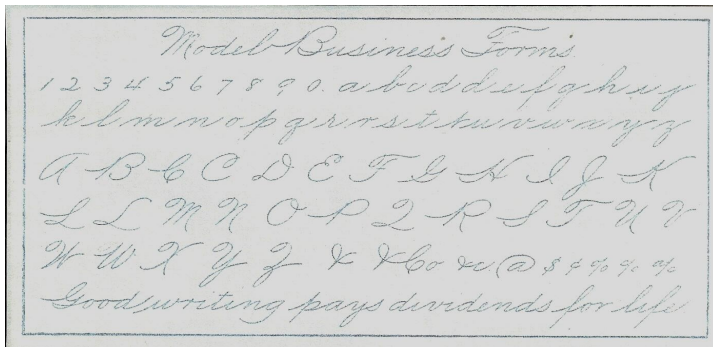 Model Business Forms
1 2 3 4 5 6 7 8 9 0. a b c d d e f g h i j
k l m n o p q r r s t t u v w x y z
A B C C D E F G H I J K
L L M N O P Q R S T U V
W W X Y Z & & Co &c @ $ ¢ % % %
Good writing pays dividends for life